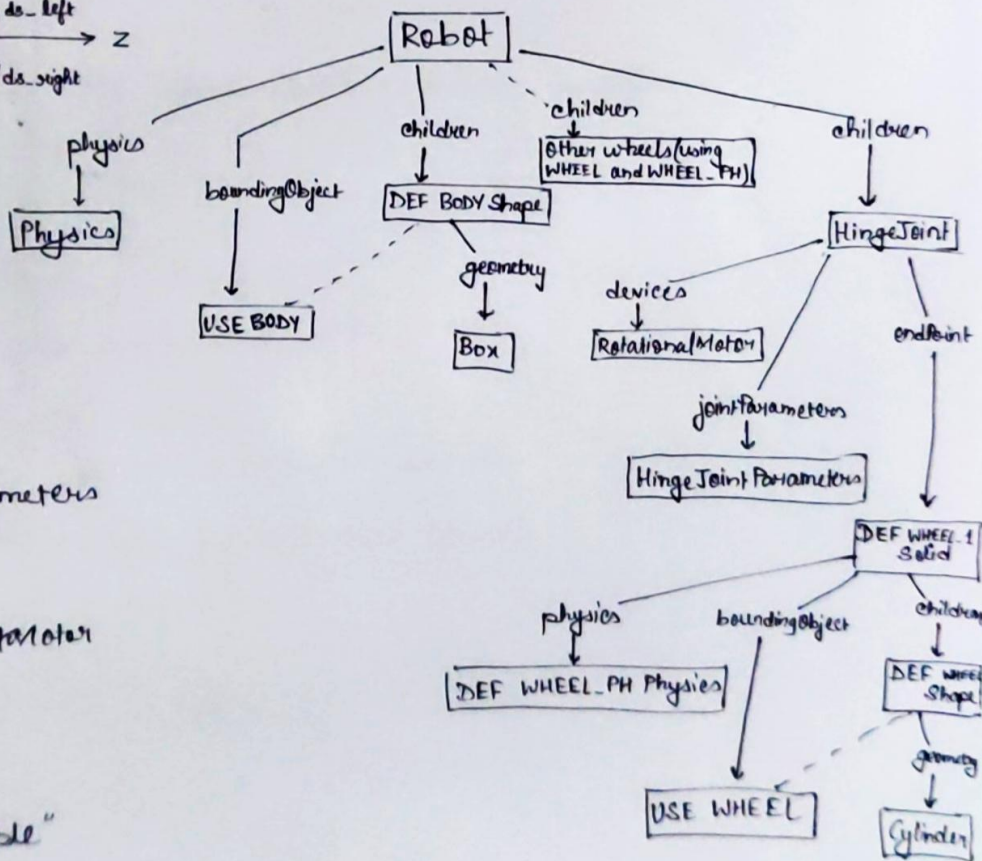 ds_left
Z
ds_right
Robot
physics
Physics
boundingObject
USE BODY
children
DEF BODY Shape
geometry
Box
children
Other wheels (using
WHEEL and WHEEL_PH)
children
HingeJoint
devices
RotationalMotor
jointParameters
HingeJointParameters
endPoint
DEF WHEEL_1
Solid
physics
DEF WHEEL_PH Physics
boundingObject
USE WHEEL
children
DEF WHEEL
Shape
geometry
Cylinder
meters